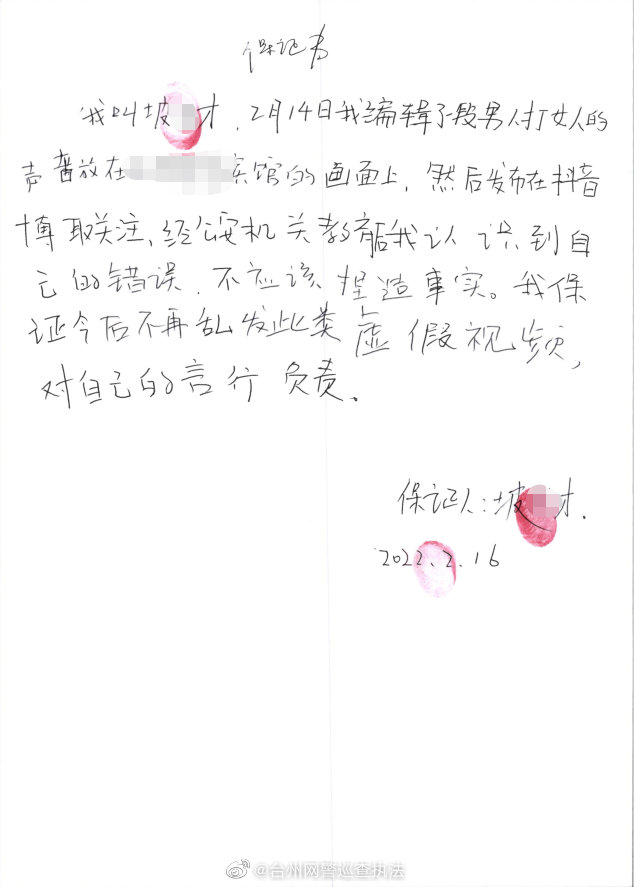 保证书
我叫坡 才，2月14日我编辑了段男人打女人的
声音放在 宾馆的画面上，然后发布在抖音
博取关注，经公安机关教育后我认识到自
己的错误，不应该捏造事实。我保
证今后不再乱发此类虚假视频，
对自己的言行负责。
保证人：坡 才.
2022.2.16
@台州网警巡查执法